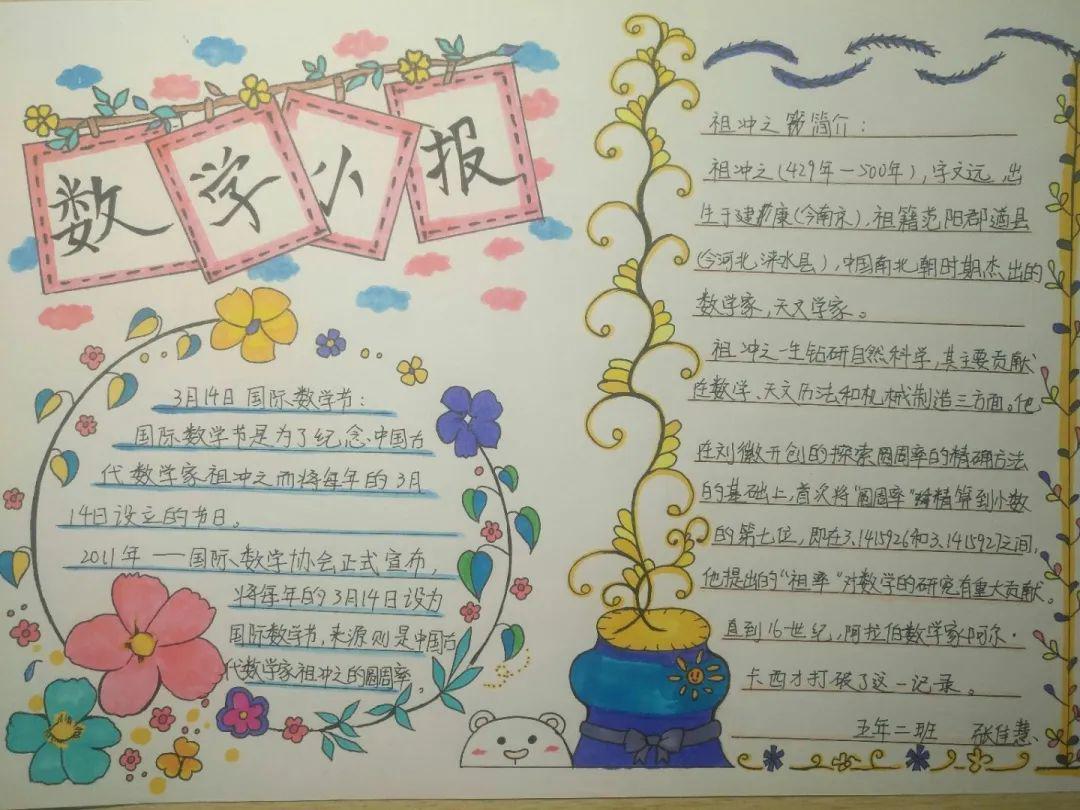 数学小报
3月14日 国际数学节：
国际数学节是为了纪念中国古
代数学家祖冲之而将每年的3月
14日设立的节日。
2011年——国际数学协会正式宣布，
将每年的3月14日设为
国际数学节，来源则是中国古
代数学家祖冲之的圆周率。
祖冲之简介：
祖冲之(429年—500年)，字文远，出
生于建康(今南京)，祖籍范阳郡遒县
(今河北涞水县)，中国南北朝时期杰出的
数学家，天文学家。
祖冲之一生钻研自然科学，其主要贡献
在数学、天文历法和机械制造三方面。他
在刘徽开创的探索圆周率的精确方法
的基础上，首次将“圆周率”精算到小数
的第七位，即在3.1415926和3.1415927之间，
他提出的“祖率”对数学的研究有重大贡献。
直到16世纪，阿拉伯数学家阿尔·
卡西才打破了这一记录。
五年二班 张佳慧